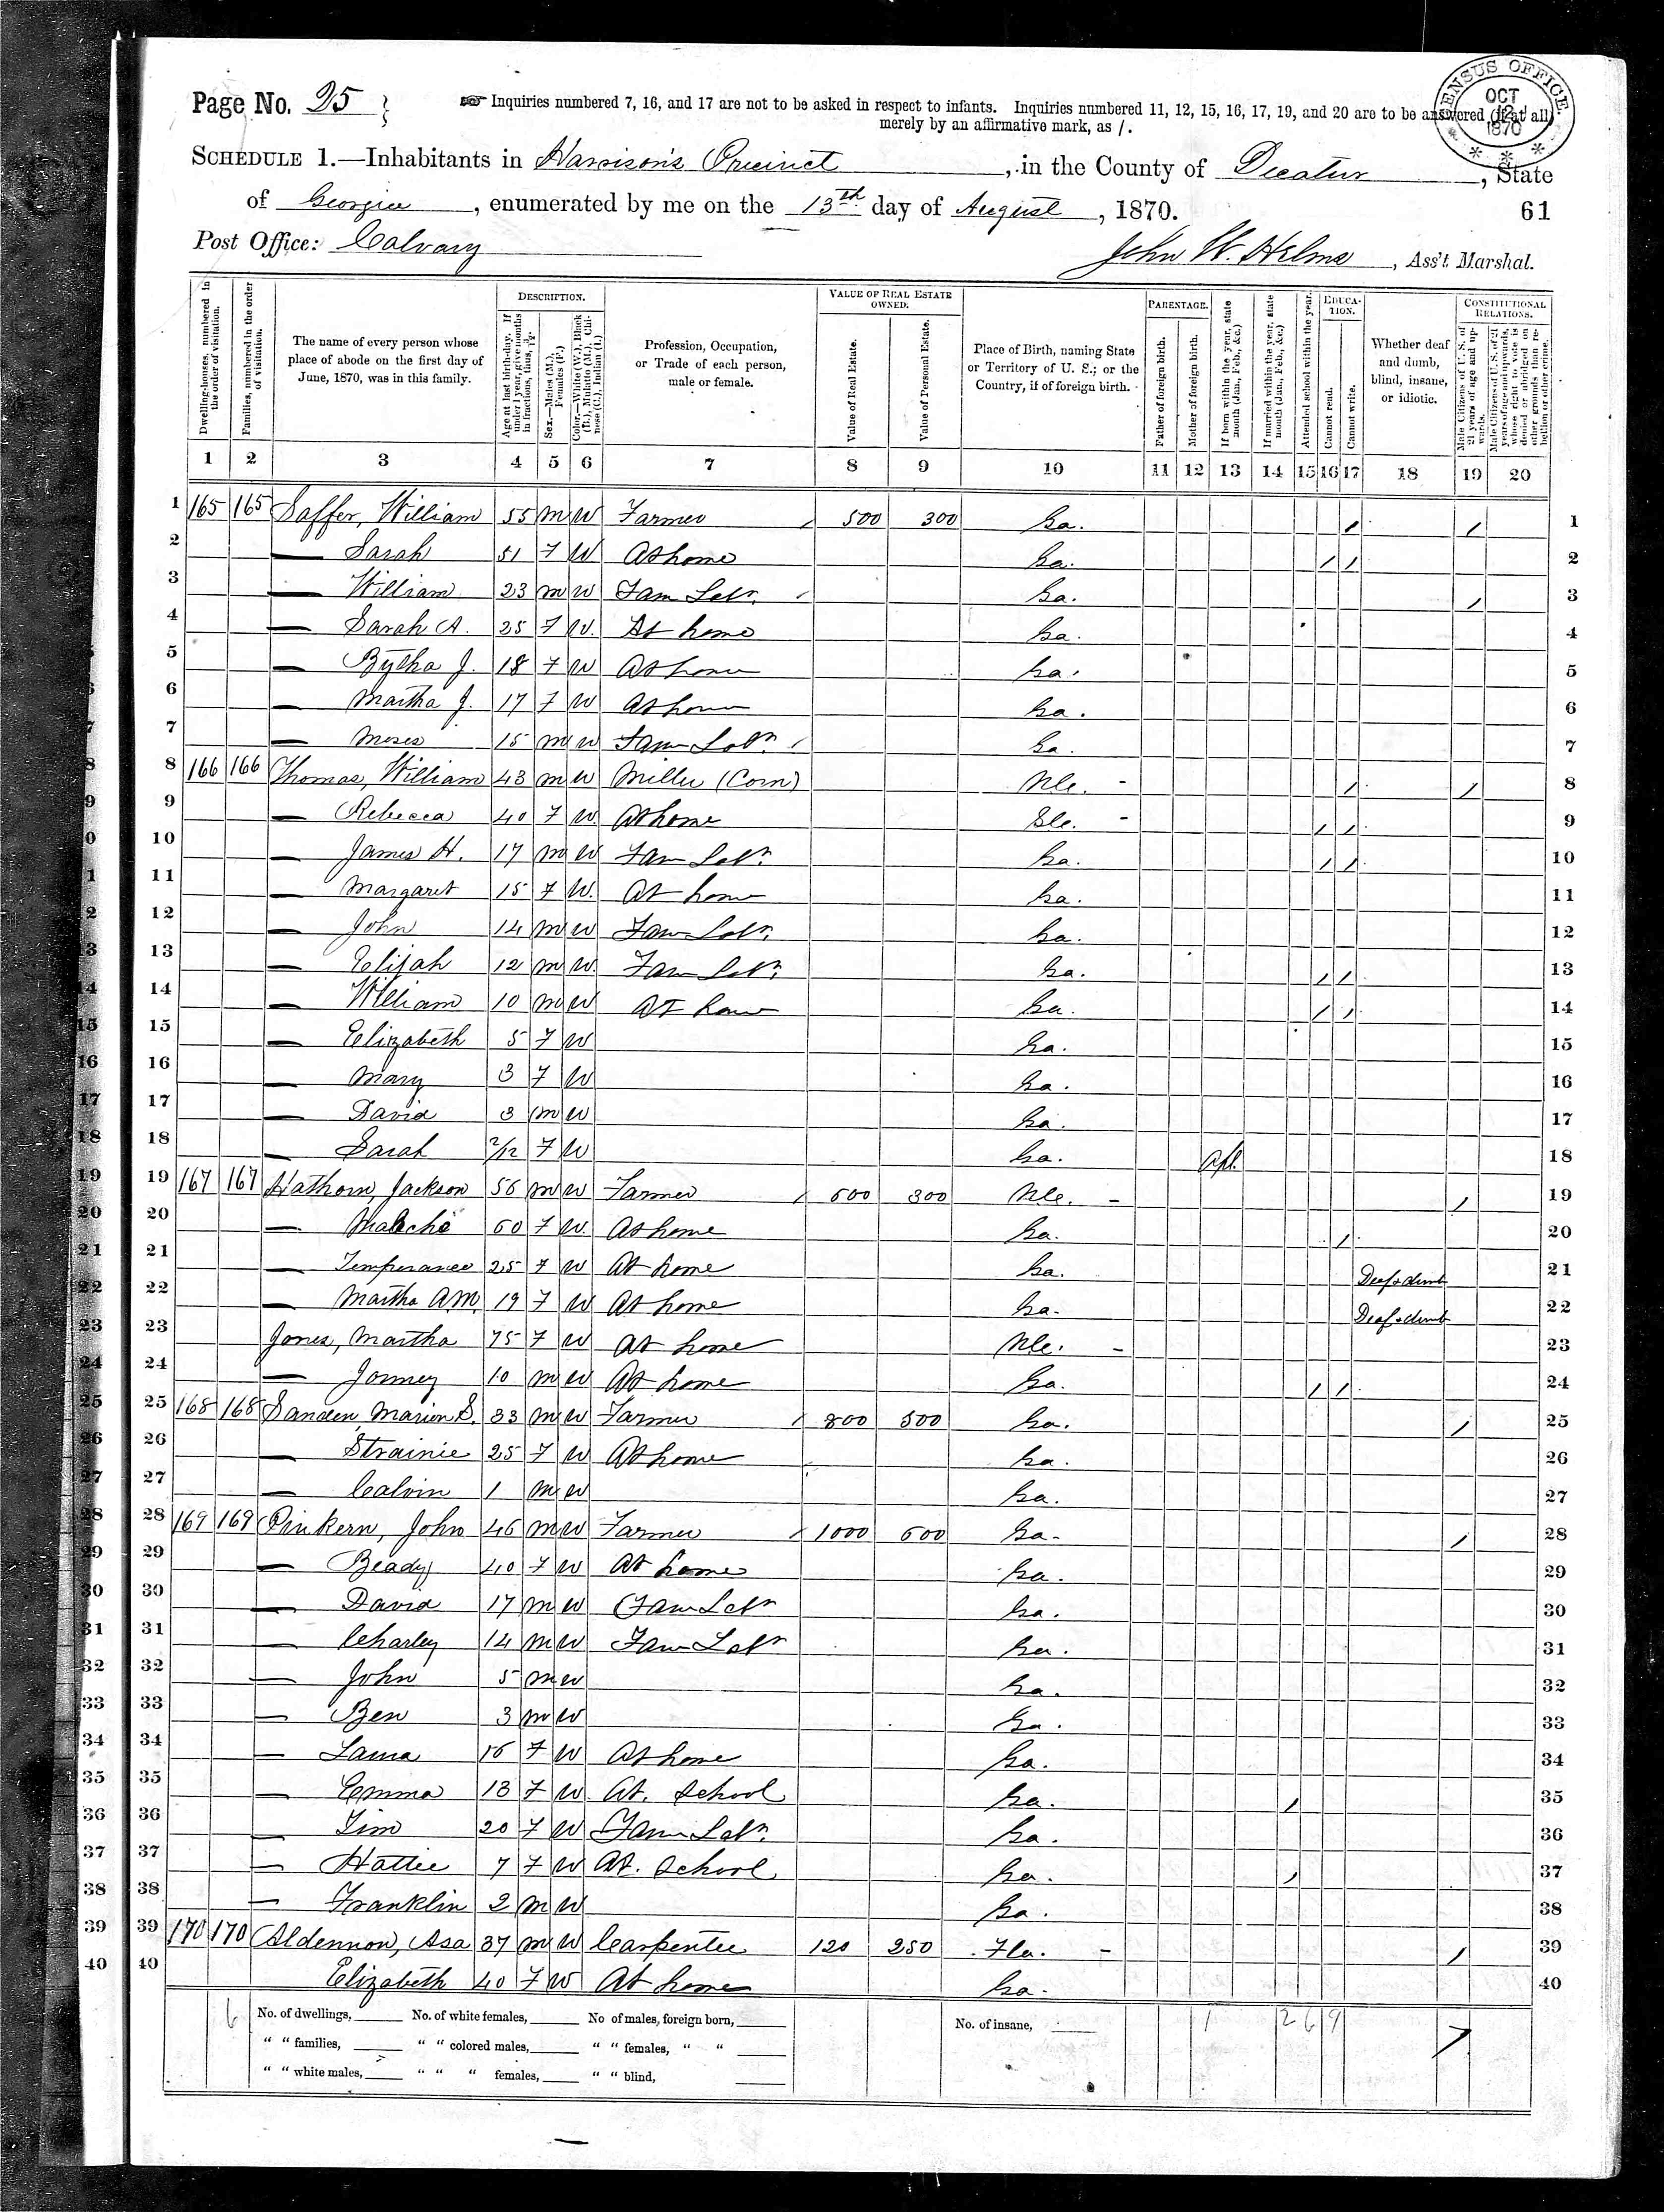 Page No. 25
Inquiries numbered 7, 16, and 17 are not to be asked in respect to infants. Inquiries numbered 11, 12, 15, 16, 17, 19, and 20 are to be answered (if at all)
merely by an affirmative mark, as /.
CENSUS OFFICE
OCT
12
1870
SCHEDULE 1.—Inhabitants in Harrison's Precinct, in the County of Decatur, State
of Georgia, enumerated by me on the 13th day of August, 1870.
61
Post Office: Calvary
John W. Helms, Ass't Marshal.
Dwelling-houses, numbered in the order of visitation.
Families, numbered in the order of visitation.
The name of every person whose place of abode on the first day of June, 1870, was in this family.
DESCRIPTION.
Age at last birth-day. If under 1 year, give months in fractions, thus, 3/12
Sex.—Males (M.), Females (F.)
Color.—White (W.), Black (B.), Mulatto (M.), Chinese (C.), Indian (I.)
Profession, Occupation, or Trade of each person, male or female.
VALUE OF REAL ESTATE OWNED.
Value of Real Estate.
Value of Personal Estate.
Place of Birth, naming State or Territory of U. S.; or the Country, if of foreign birth.
PARENTAGE.
Father of foreign birth.
Mother of foreign birth.
If born within the year, state month (Jan., Feb., &c.)
If married within the year, state month (Jan., Feb., &c.)
Attended school within the year.
EDUCATION.
Cannot read.
Cannot write.
Whether deaf and dumb, blind, insane, or idiotic.
CONSTITUTIONAL RELATIONS.
Male Citizens of U. S. of 21 years of age and upwards.
Male Citizens of U. S. of 21 years of age and upwards, whose right to vote is denied or abridged on other grounds than rebellion or other crime.
1 2 3 4 5 6 7 8 9 10 11 12 13 14 15 16 17 18 19 20
1 165 165 Saffer, William 55 m W Farmer / 500 300 Ga. / / 1
2 — Sarah 51 F W At home Ga. / / 2
3 — William 23 m W Fam Labr. / Ga. / 3
4 — Sarah A. 25 F W. At home Ga. 4
5 — Bytha J. 18 F W At home Ga. 5
6 — Martha J. 17 F W At home Ga. 6
7 — Moses 15 m W Fam Labr. / Ga. 7
8 166 166 Thomas, William 43 m W Miller (Corn) N C. - / / 8
9 — Rebecca 40 F W At home S C. - / / 9
10 — James H. 17 m W Fam Labr. Ga. / / 10
11 — Margaret 15 F W. At home Ga. 11
12 — John 14 m W Fam Labr. Ga. 12
13 — Elijah 12 m W. Fam Labr. Ga. / / 13
14 — William 10 m W At home Ga. / / 14
15 — Elizabeth 5 F W Ga. 15
16 — Mary 3 F W Ga. 16
17 — David 3 m W Ga. 17
18 — Sarah 2/12 F W Ga. Apl. 18
19 167 167 Hathorn, Jackson 56 m W Farmer / 600 300 N C. - / 19
20 — 60 F W. At home Ga. / 20
21 — Temperance 25 F W At home Ga. Deaf & dumb 21
22 — Martha A M. 19 F W At home Ga. Deaf & dumb 22
23 Jones, Martha 75 F W At home N C. - 23
24 — 10 m W At home Ga. / / 24
25 168 168 Marion S. 33 m W Farmer / 800 500 Ga. / 25
26 — 25 F W At home Ga. 26
27 — Calvin 1 m W Ga. 27
28 169 169 John 46 m W Farmer / 1000 600 Ga. / 28
29 — 40 F W At home Ga. 29
30 — David 17 m W Fam Labr Ga. 30
31 — Charley 14 m W Fam Labr Ga. 31
32 — John 5 m W Ga. 32
33 — Ben 3 m W Ga. 33
34 — 16 F W At home Ga. 34
35 — Emma 13 F W At. School Ga. / 35
36 — 20 F W Fam Labr. Ga. 36
37 — Hattie 7 F W At. School Ga. / 37
38 — Franklin 2 m W Ga. 38
39 170 170 Asa 37 m W Carpenter 120 250 Fla. - / 39
40 Elizabeth 40 F W At home Ga. 40
6 No. of dwellings, No. of white females, No of males, foreign born, No. of insane, 1 2 6 9 7
" " families, " " colored males, " " females, " "
" " white males, " " " females, " " blind,